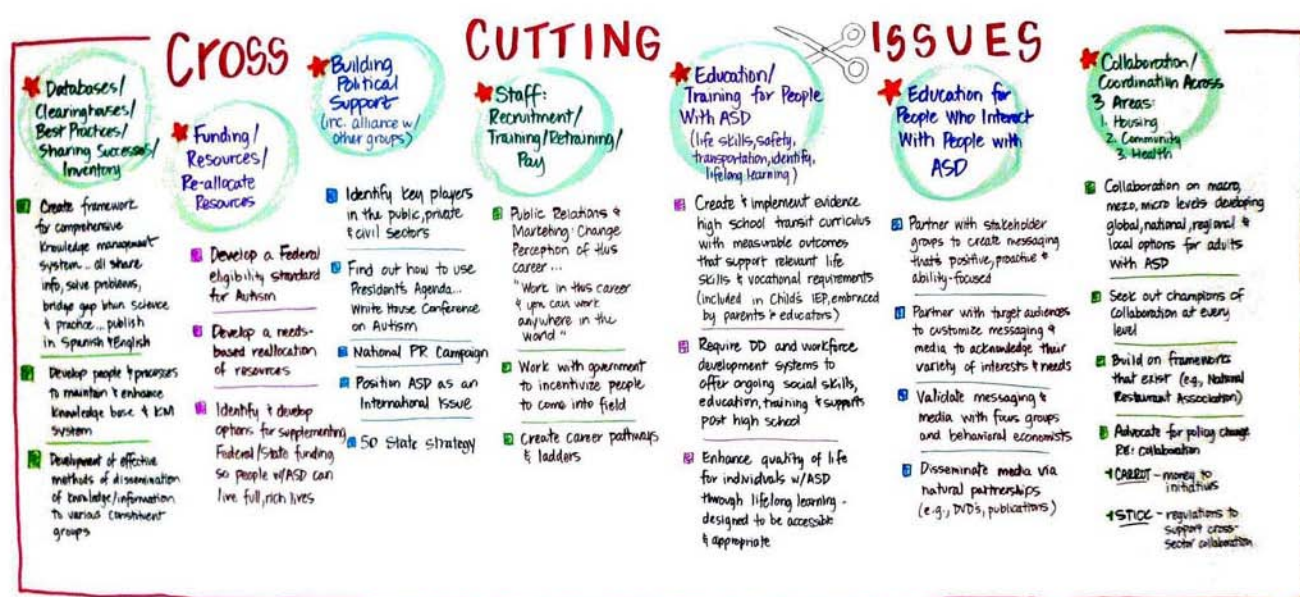 CROSS CUTTING ISSUES
Databases/
Clearinghouses/
Best Practices/
Sharing Successes/
Inventory
Create framework
for comprehensive
Knowledge management
system... all share
info, solve problems,
bridge gap btwn science
& practice... publish
in Spanish & English
Develop people & processes
to maintain & enhance
Knowledge base & KM
System
Development of effective
methods of dissemination
of knowledge/information
to various constituent
groups
Funding/
Resources/
Re-allocate
Resources
Develop a Federal
eligibility standard
for Autism
Develop a needs-
based reallocation
of resources
Identify & develop
options for supplementing
Federal/State funding
so people w/ASD can
live full, rich lives
Building
Political
Support
(inc. alliance w/
other groups)
Identify key players
in the public, private
& civil sectors
Find out how to use
President's Agenda...
White House Conference
on Autism
National PR Campaign
Position ASD as an
International Issue
50 State Strategy
Staff:
Recruitment/
Training/Retraining/
Pay
Public Relations &
Marketing: Change
Perception of this
career...
"Work in this career
& you can work
anywhere in the
world"
Work with government
to incentivize people
to come into field
Create career pathways
& ladders
Education/
Training for People
With ASD
(life skills, safety,
transportation, identify,
lifelong learning)
Create & implement evidence
high school transit curiculus
with measurable outcomes
that support relevant life
skills & vocational requirements
(included in Child's IEP, embraced
by parents & educators)
Require DD and workforce
development systems to
offer ongoing social skills,
education, training & supports
post high school
Enhance quality of life
for individuals w/ASD
through lifelong learning -
designed to be accessible
& appropriate
Education for
People Who Interact
With People with
ASD
Partner with stakeholder
groups to create messaging
that's positive, proactive &
ability-focused
Partner with target audiences
to customize messaging &
media to acknowledge their
variety of interests & needs
Validate messaging &
media with focus groups
and behavioral economists
Disseminate media via
natural partnerships
(e.g., DVD's, publications)
Collaboration/
Coordination Across
3 Areas:
1. Housing
2. Community
3. Health
Collaboration on macro,
mezo, micro levels developing
global, national, regional &
local options for adults
with ASD
Seek out champions of
collaboration at every
level
Build on frameworks
that exist (e.g., National
Restaurant Association)
Advocate for policy change
RE: collaboration
CARROT - money to
initiatives
STICK - regulations to
support cross-
sector collaboration